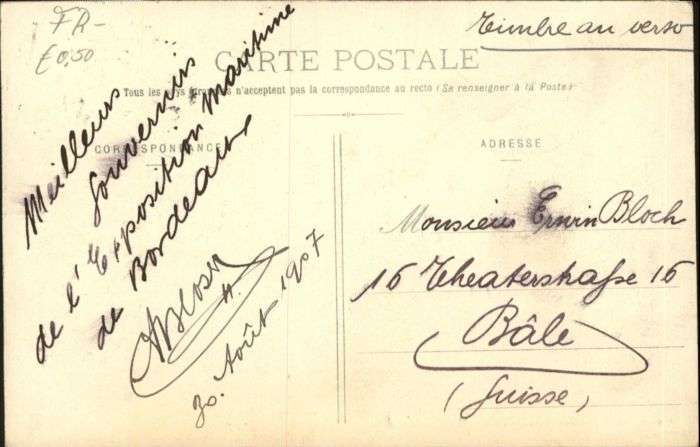 FR-
€0,50
Timbre au verso
CARTE POSTALE
Tous les pays étrangers n'acceptent pas la correspondance au recto (Se renseigner à la Poste)
CORRESPONDANCE
Meilleurs
souvenirs
de l'Exposition Maritime
de Bordeaux
30. Août 1907
ADRESSE
Monsieur Erwin Bloch
16 Theaterstraße 16
Bâle
(Suisse)